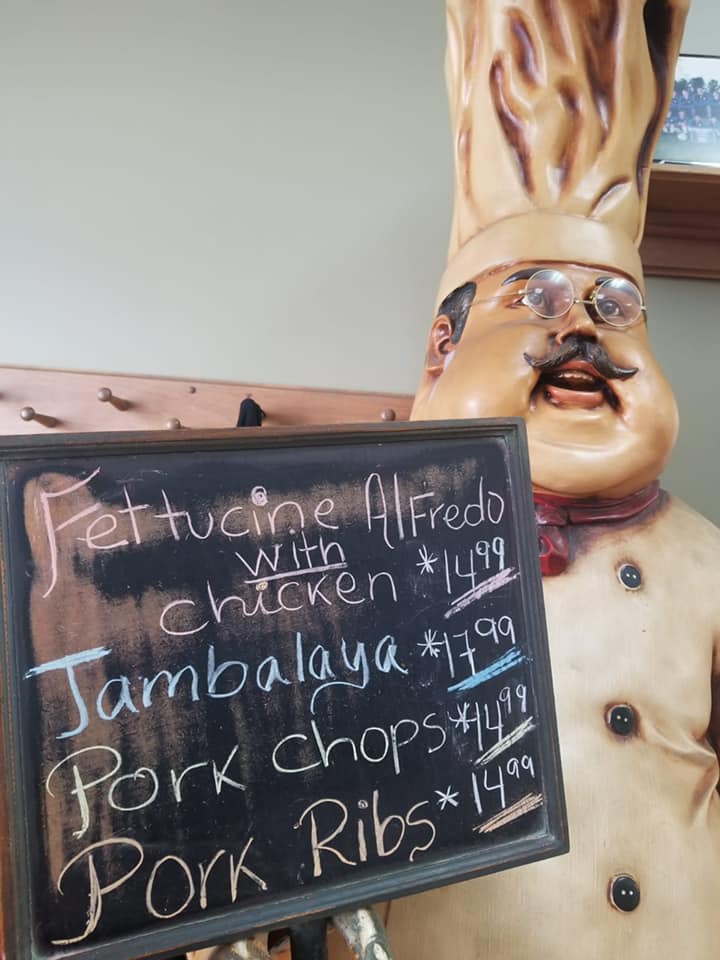 Fettucine AlFredo
with
chicken *14⁹⁹
Jambalaya *17⁹⁹
Pork chops *14⁹⁹
Pork Ribs * 14⁹⁹